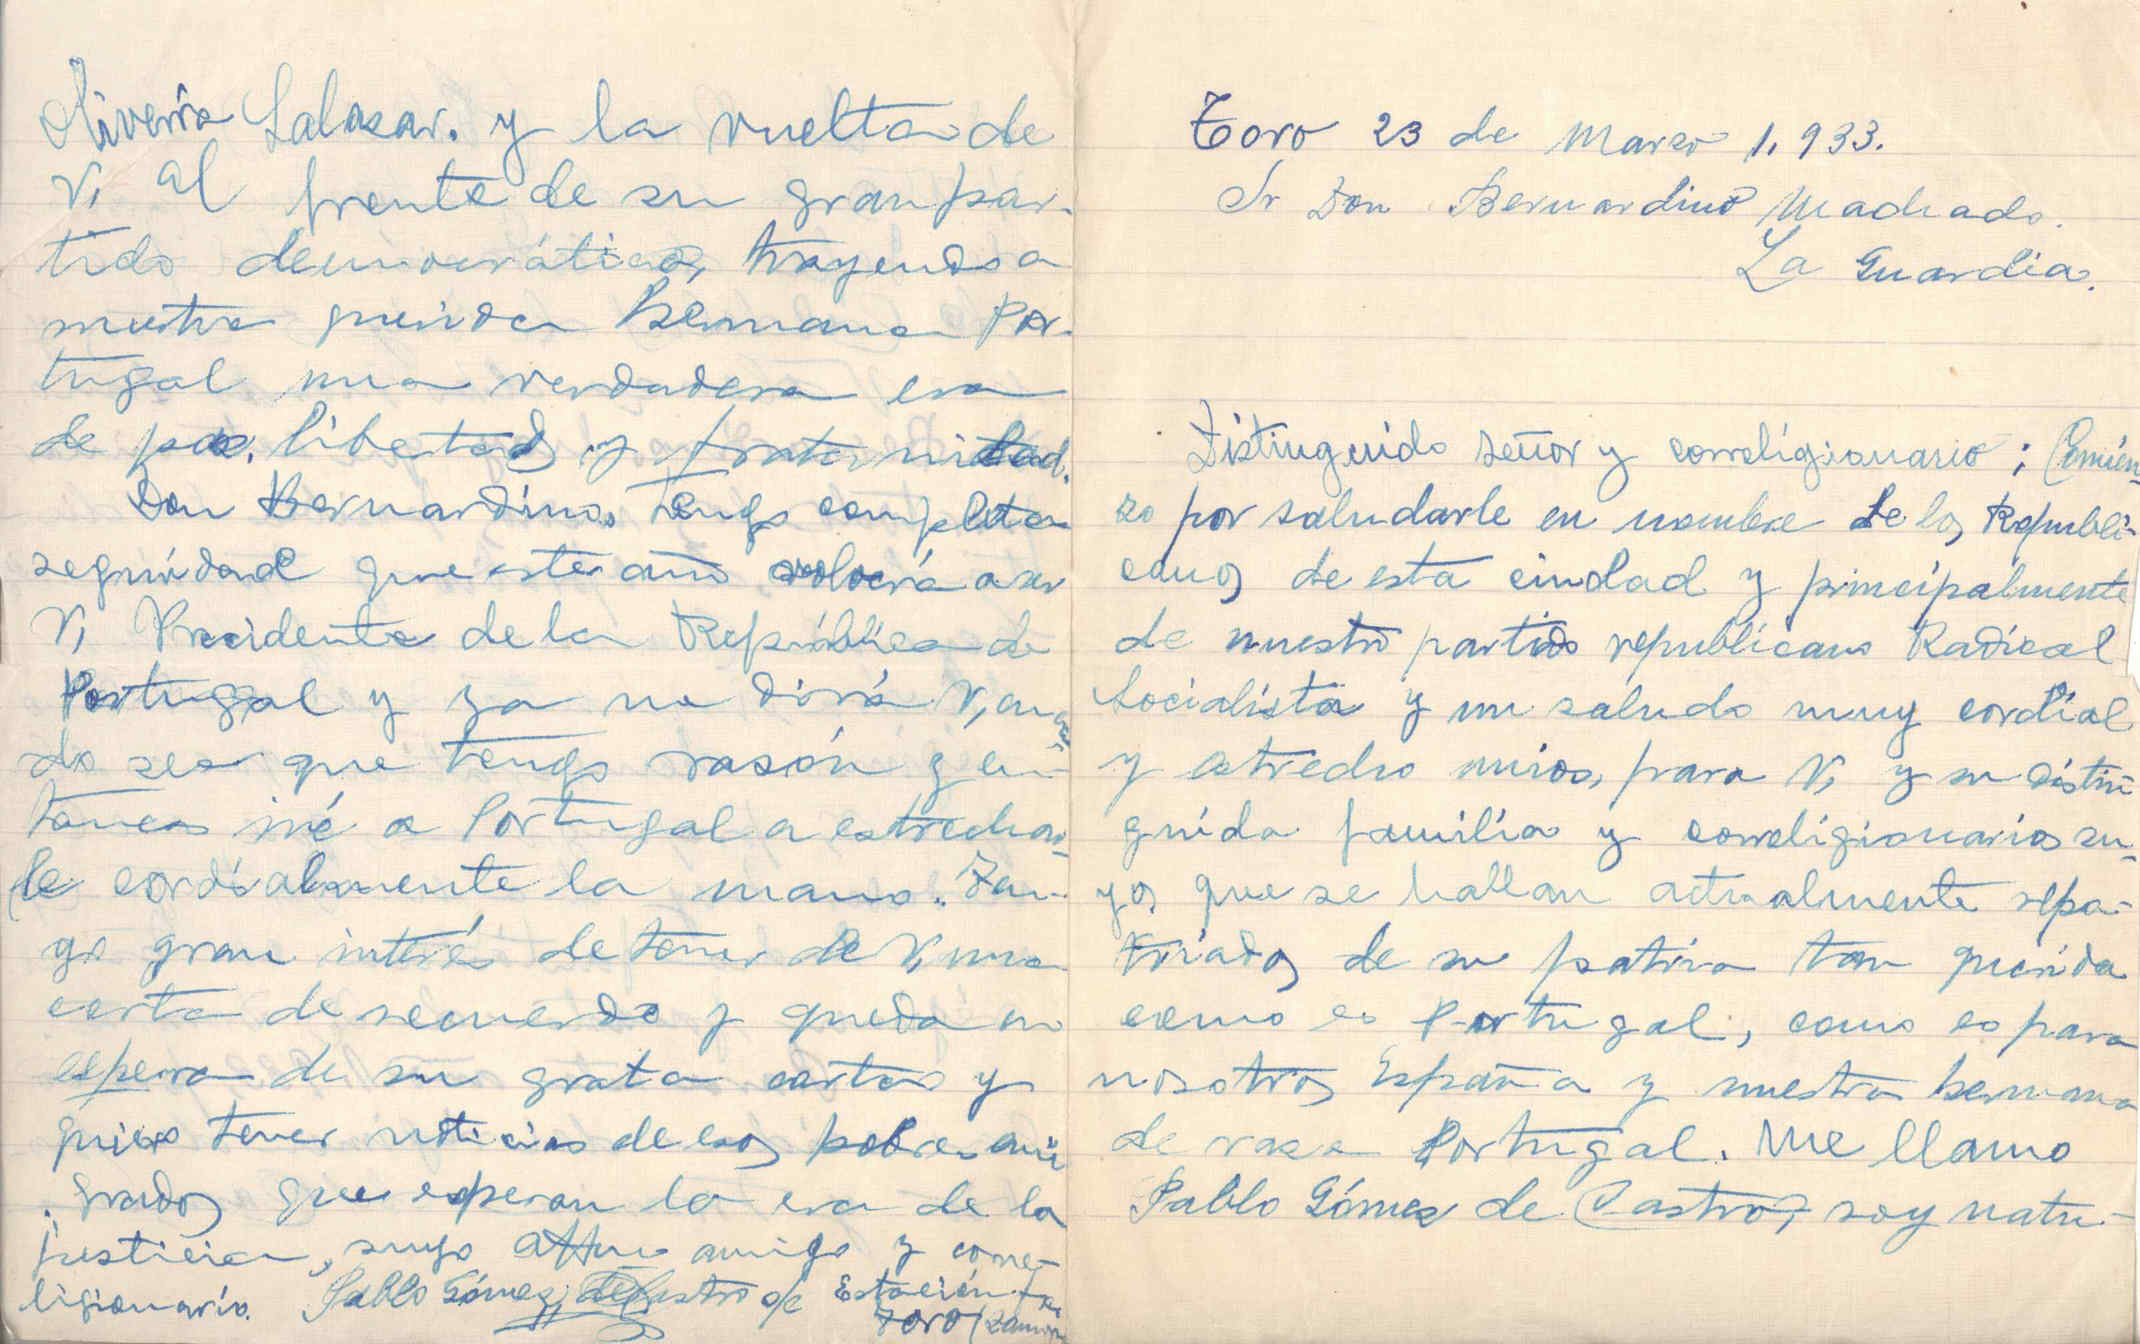 Toro 23 de Marzo 1.933.
Sr Don Bernardino Machado.
La Guardia.
Distinguido señor y correligionario; Comien-
zo por saludarle en nombre de los Republi-
canos de esta ciudad y principalmente
de nuestro partido republicano Radical
Socialista y un saludo muy cordial
y estrecho mios, para V, y su distin
guida familia y correligionarios su-
yos que se hallan actualmente repa-
triados de su patria tan querida
como es Portugal, como es para
nosotros España y nuestra hermana
de raza Portugal. Me llamo
Pablo Gómez de Castro, soy natu-
Oliveira Salazar. y la vuelta de
V, al frente de su gran par-
tido democrático, trayendo a
nuestra querida hermana Por-
tugal una verdadera era
de paz, libertad y fraternidad.
Don Bernardino, tengo completa
seguridad que este año volverá a ser
V, Presidente de la República de
Portugal y ya me dirá V, cuan
do sea que tengo razón y en-
tonces iré a Portugal a estrechar-
le cordialmente la mano. Ten-
go gran interés de tener de V, una
carta de recuerdo y queda en
espera de su grata carta y
quiero tener noticias de esos pobres emi
grados que esperan la era de la
justicia, suyo affmo amigo y corre-
ligionario. Pablo Gómez de Castro o/c Estación
Toro (Zamora